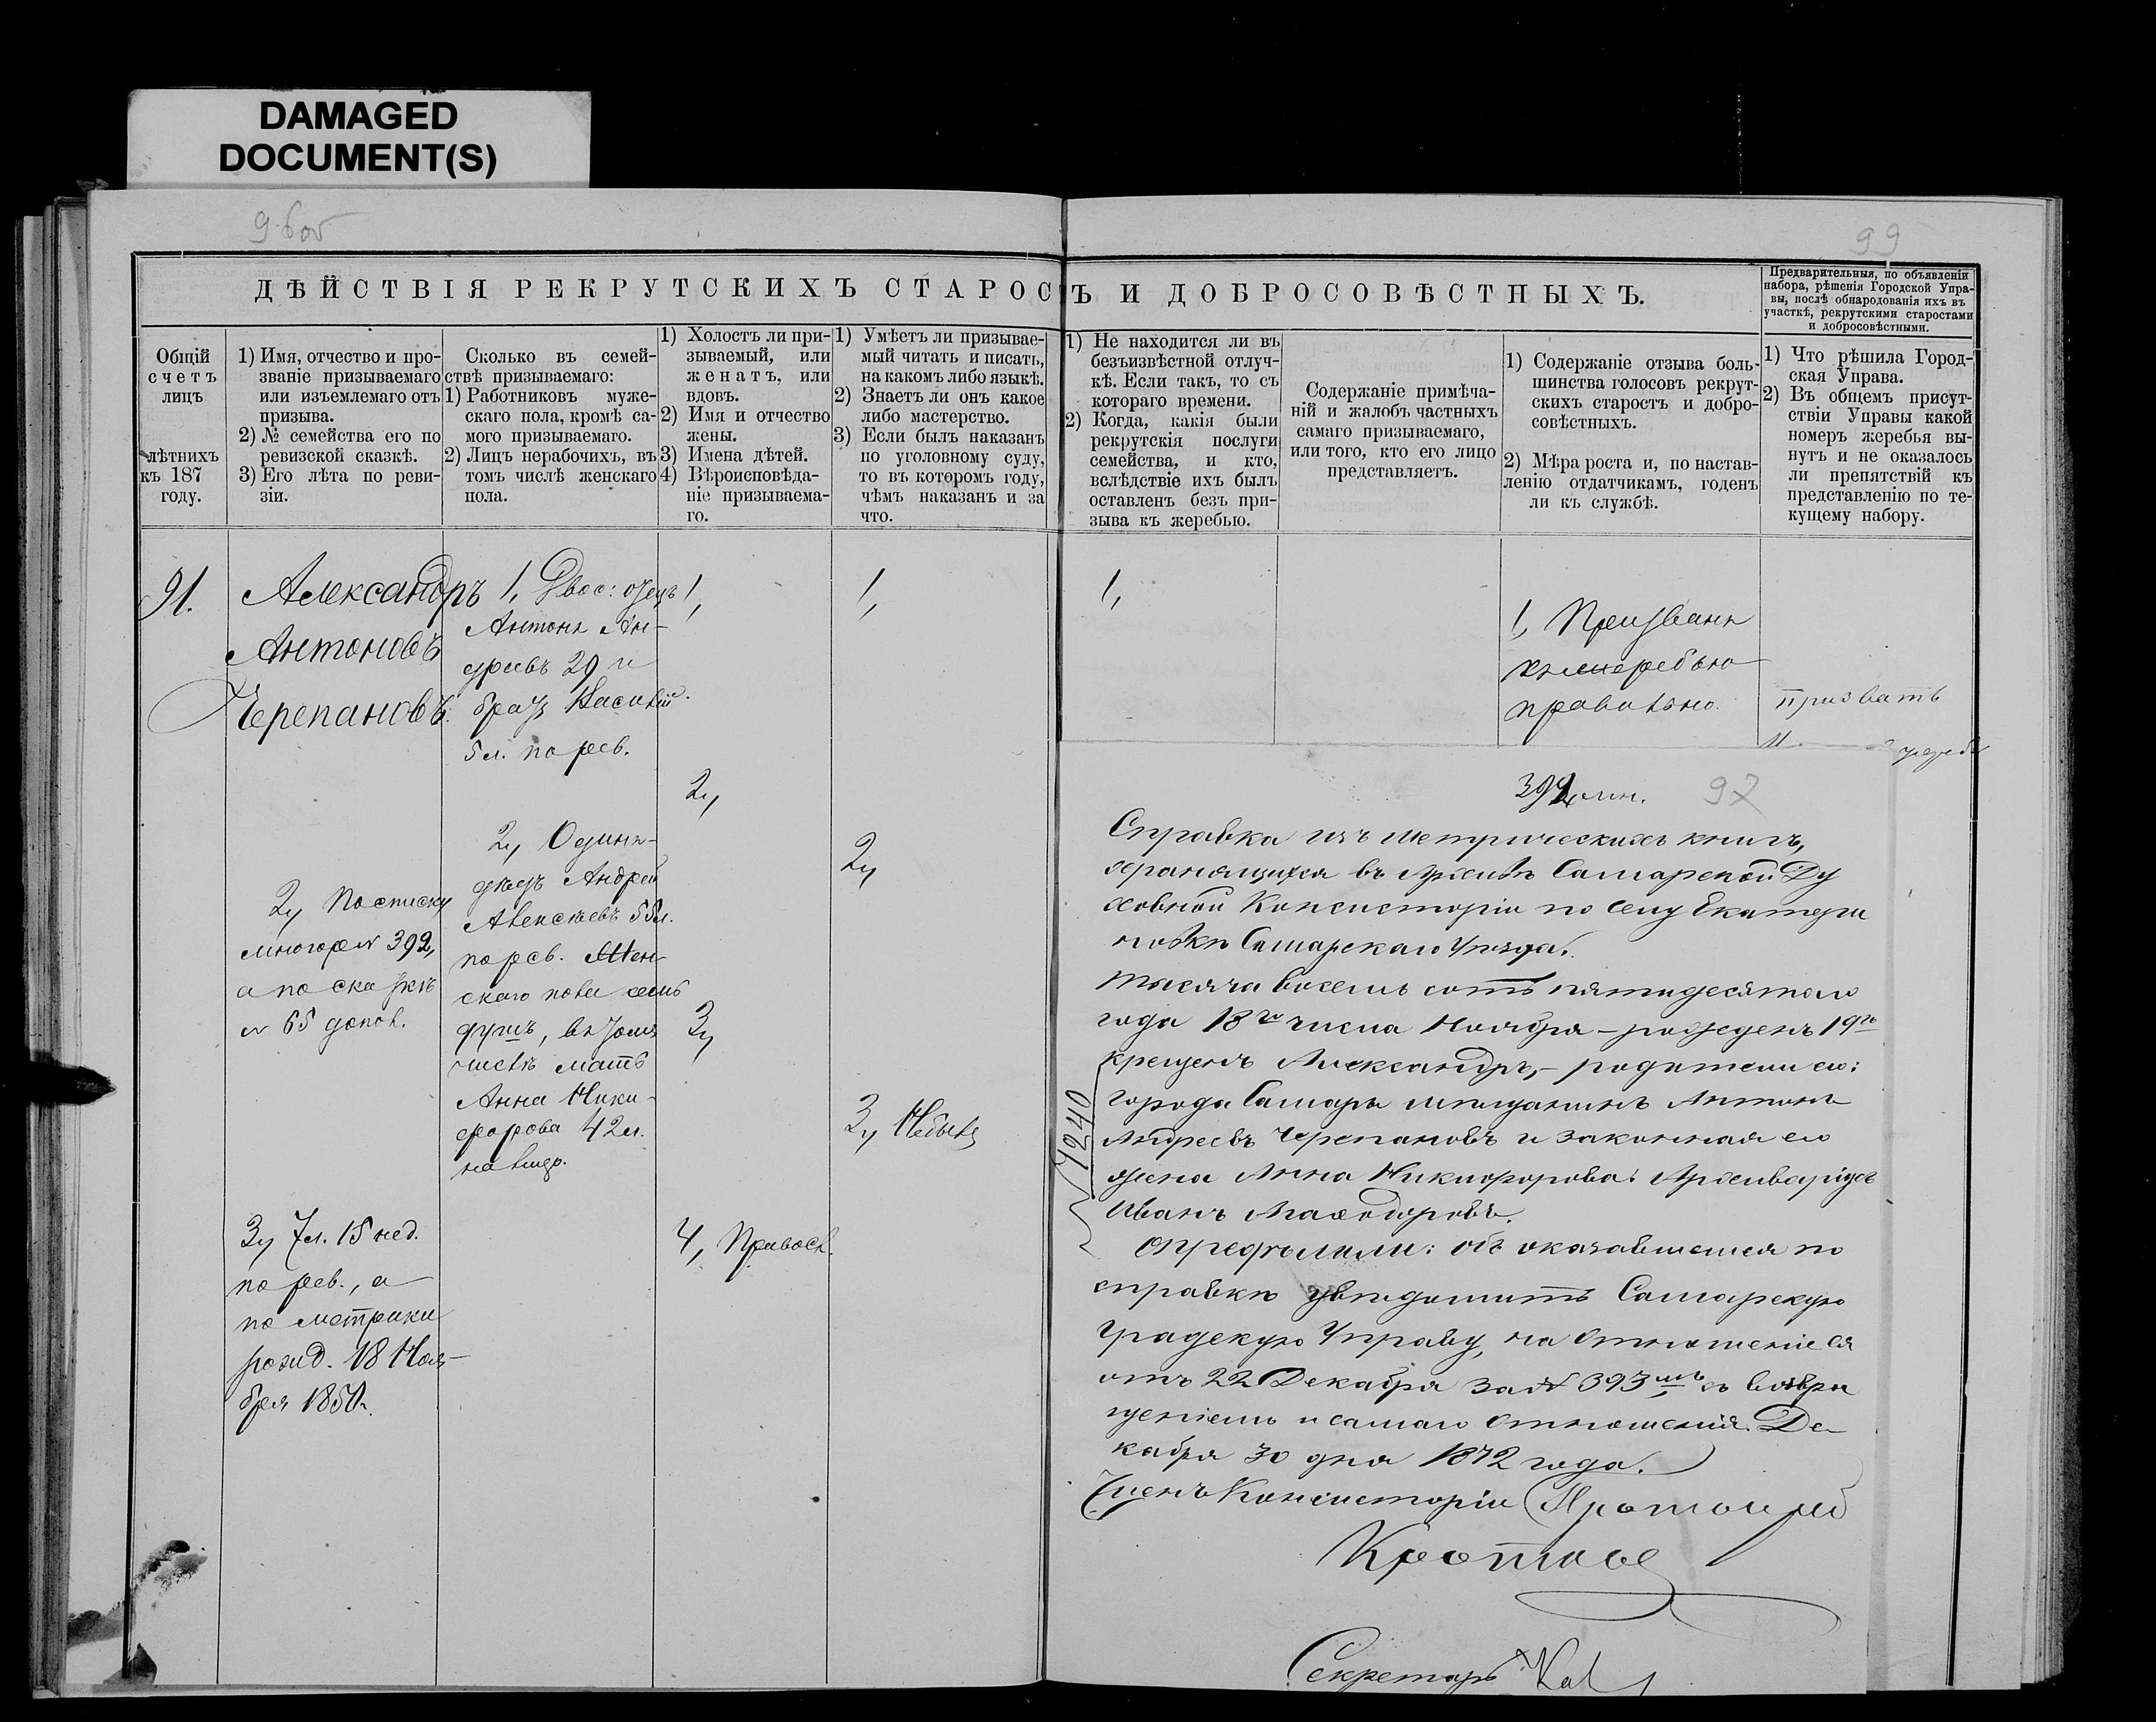 DAMAGED
DOCUMENT(S)
99
ДѢЙСТВІЯ РЕКРУТСКИХЪ СТАРОСТЪ И ДОБРОСОВѢСТНЫХЪ.
Предварительныя, по объявленіи
набора, рѣшенія Городской Упра-
вы, послѣ обнародованія ихъ въ
участкѣ, рекрутскими старостами
и добросовѣстными.
Общій
счетъ
лицъ
лѣтнихъ
къ 187
году.
1) Имя, отчество и про-
званіе призываемаго
или изъемлемаго отъ
призыва.
2) № семейства его по
ревизской сказкѣ.
3) Его лѣта по реви-
зіи.
Сколько въ семей-
ствѣ призываемаго:
1) Работниковъ муже-
скаго пола, кромѣ са-
мого призываемаго.
2) Лицъ нерабочихъ, въ
томъ числѣ женскаго
пола.
1) Холостъ ли при-
зываемый, или
женатъ, или
вдовъ.
2) Имя и отчество
жены.
3) Имена дѣтей.
4) Вѣроисповѣда-
ніе призываема-
го.
1) Умѣетъ ли призывае-
мый читать и писать,
на какомъ либо языкѣ.
2) Знаетъ ли онъ какое
либо мастерство.
3) Если былъ наказанъ
по уголовному суду,
то въ которомъ году,
чѣмъ наказанъ и за
что.
1) Не находится ли въ
безъизвѣстной отлуч-
кѣ. Если такъ, то съ
котораго времени.
2) Когда, какія были
рекрутскія послуги
семейства, и кто,
вслѣдствіе ихъ былъ
оставленъ безъ при-
зыва къ жеребью.
Содержаніе примѣча-
ній и жалобъ частныхъ
самаго призываемаго,
или того, кто его лицо
представляетъ.
1) Содержаніе отзыва боль-
шинства голосовъ рекрут-
скихъ старостъ и добро-
совѣстныхъ.
2) Мѣра роста и, по настав-
ленію отдатчикамъ, годенъ
ли къ службѣ.
1) Что рѣшила Город-
ская Управа.
2) Въ общемъ присут-
ствіи Управы какой
номеръ жеребья вы-
нутъ и не оказалось
ли препятствій къ
представленію по те-
кущему набору.
91.
Александръ
Антоновъ
Черепановъ.
2, По списку
многорек № 392,
а по сказкѣ
№ 65 допол.
3, 7 л. 15 нед.
по рев., а
по метрики
рожд. 18 Ноя-
бря 1850 г.
1, Двое: отецъ
Антонъ Ан-
дреевъ 29 и
братъ Василій
5 л. по рев.
2, Одинъ-
дѣдъ Андрей
Алексѣевъ 55 л.
по рев. Жен-
скаго пола семь
душъ, въ томъ
числѣ мать
Анна Ники-
форова 42 л.
на лицо.
1,
2,
3,
4, Правосл.
1,
2,
3, Небылъ
1,
1, Призванъ
къ жеребью
правильно.
призвать
97
Справка изъ метрическихъ книгъ,
хранящихся въ Архивѣ Самарской Ду
ховной Консисторіи по селу Екатери
новкѣ Самарскаго Уѣзда.
Тысяча восемь сотъ пятидесятаго
года 18го числа Ноября – рожденъ 19го
крещенъ Александръ, – родители его:
города Самары мѣщанинъ Антонъ
Андреевъ Черепановъ и законная его
жена Анна Никифорова. Архиваріусъ
Иванъ
1240
Опредѣлили: объ оказавшемся по
справкѣ увѣдомить Самарскую
Градскую Управу, на отношеніе ея
отъ 22 Декабря за № 393мъ съ возвра
щеніемъ и самаго отношенія. Де-
кабря 30 дня 1872 года.
Членъ Консисторіи Протоіерей
Секретарь